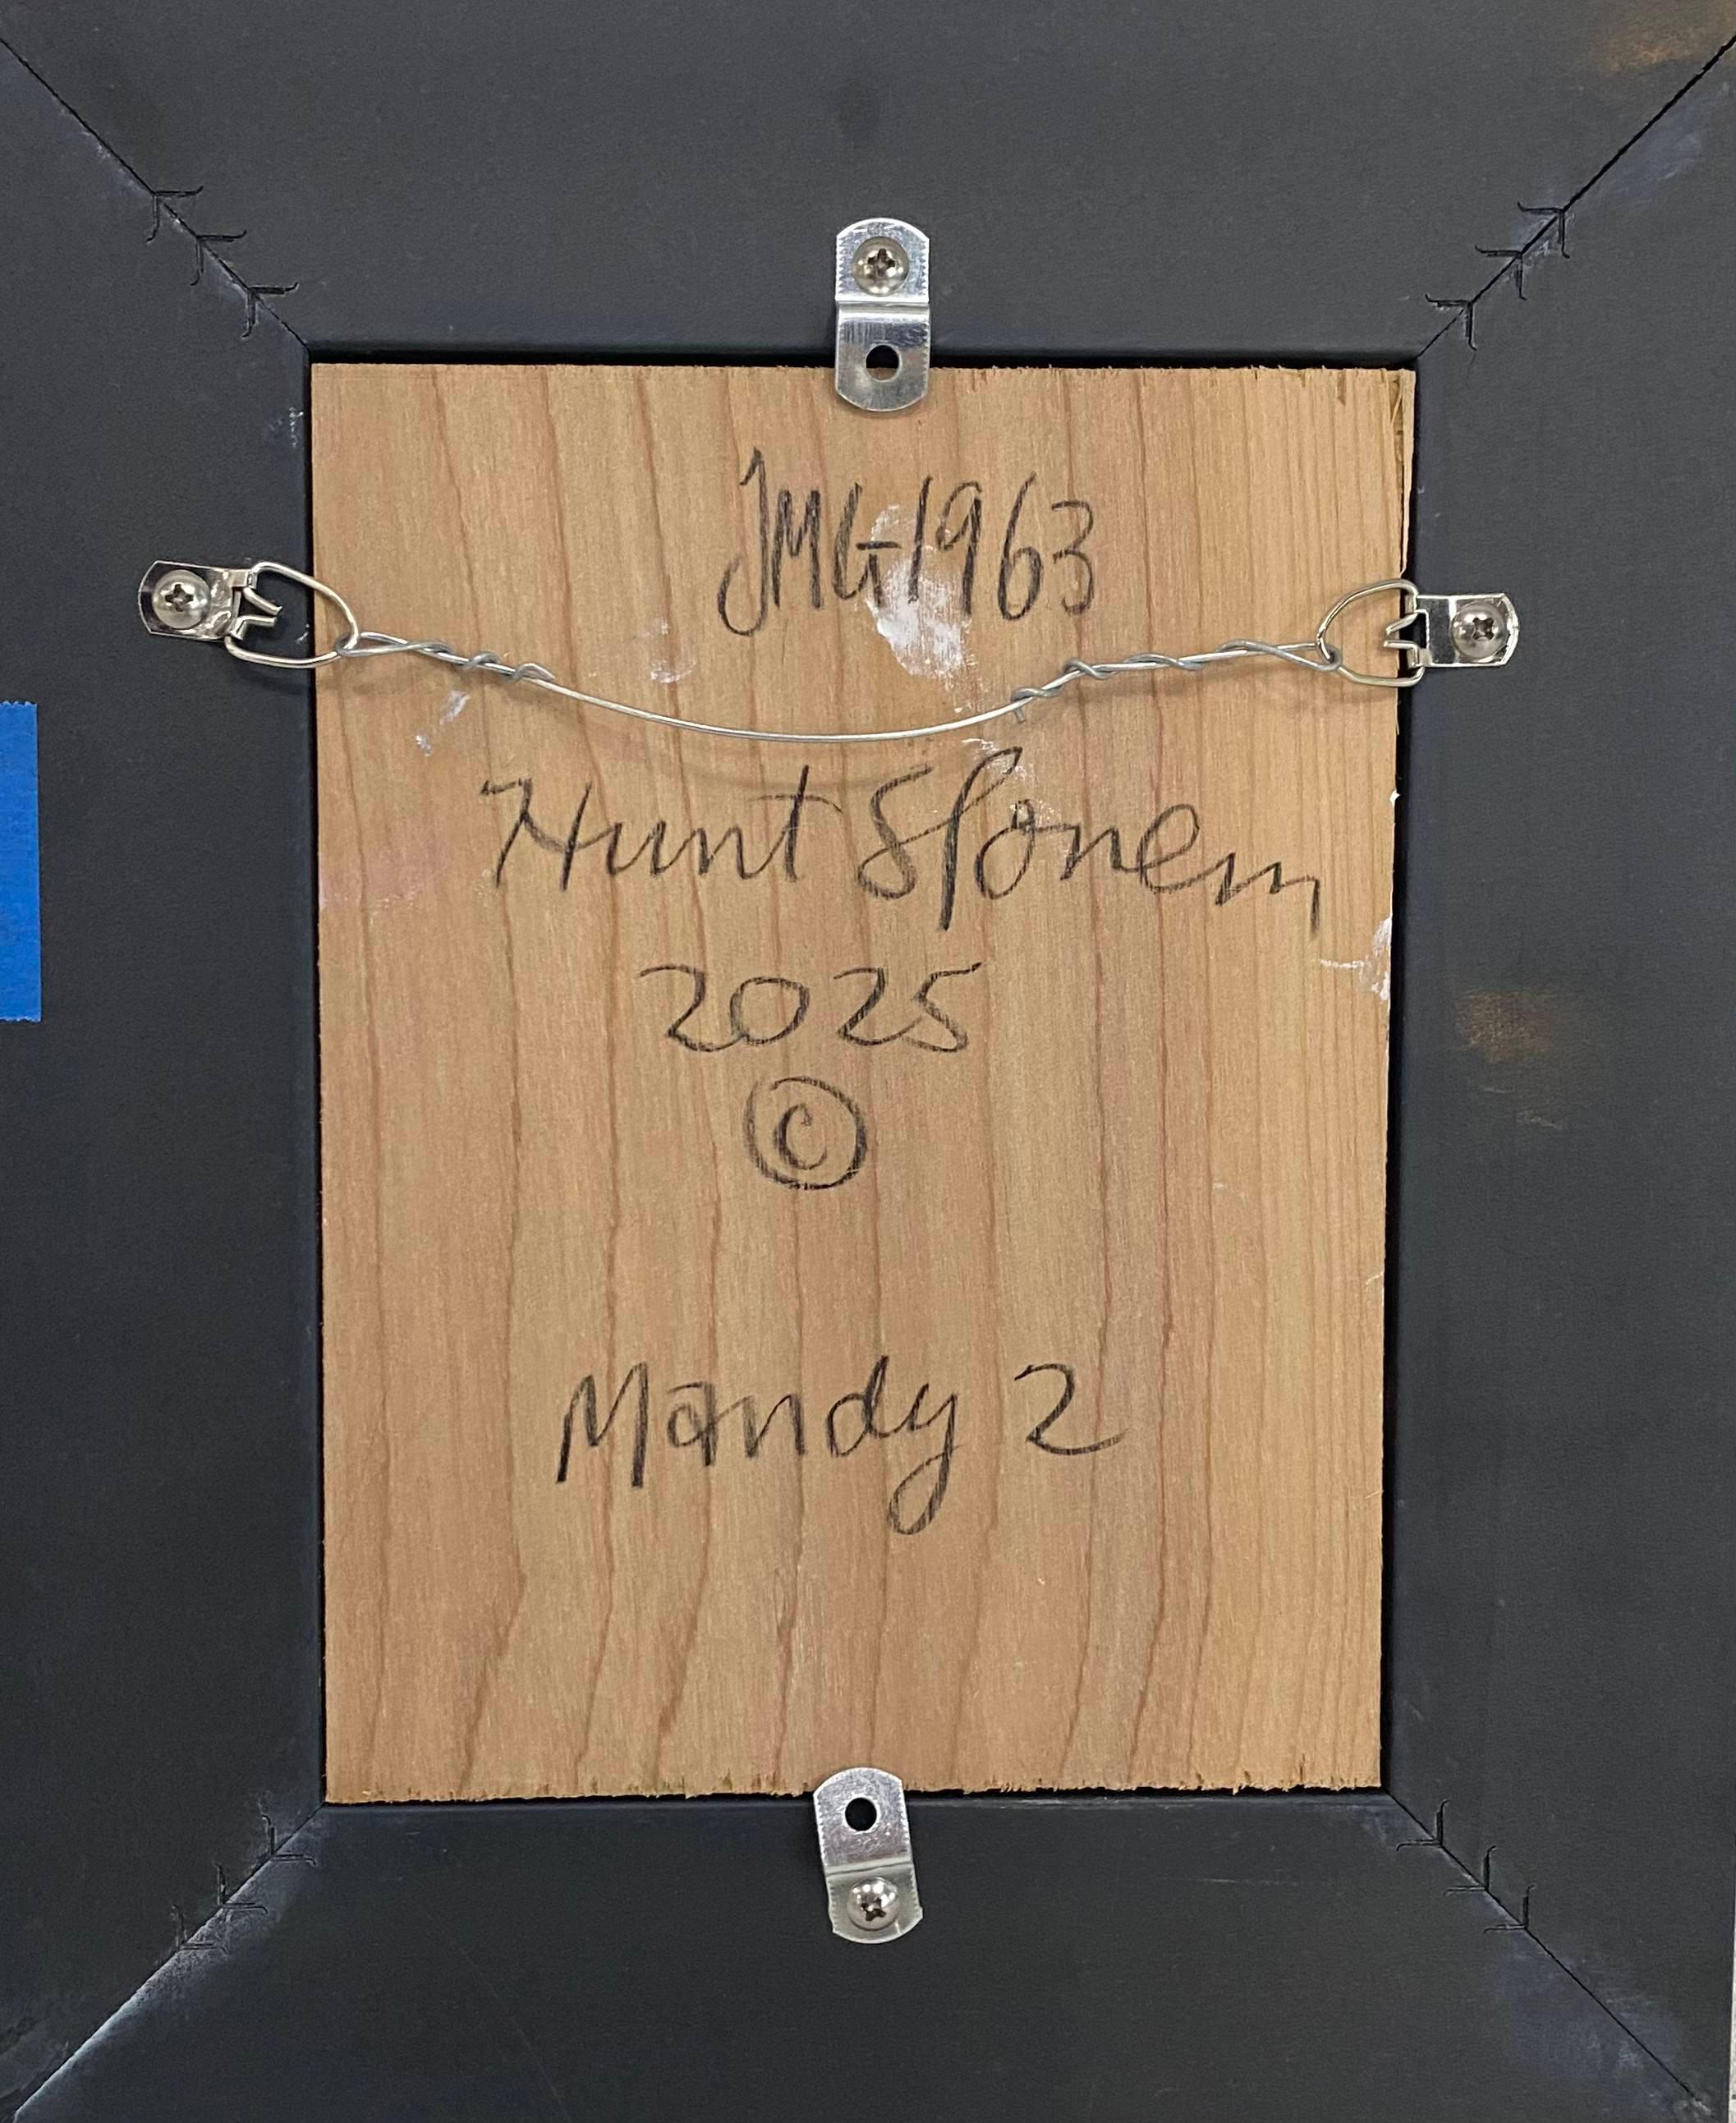 JMG1963
Hunt Slonem
2025
©
Mandy 2